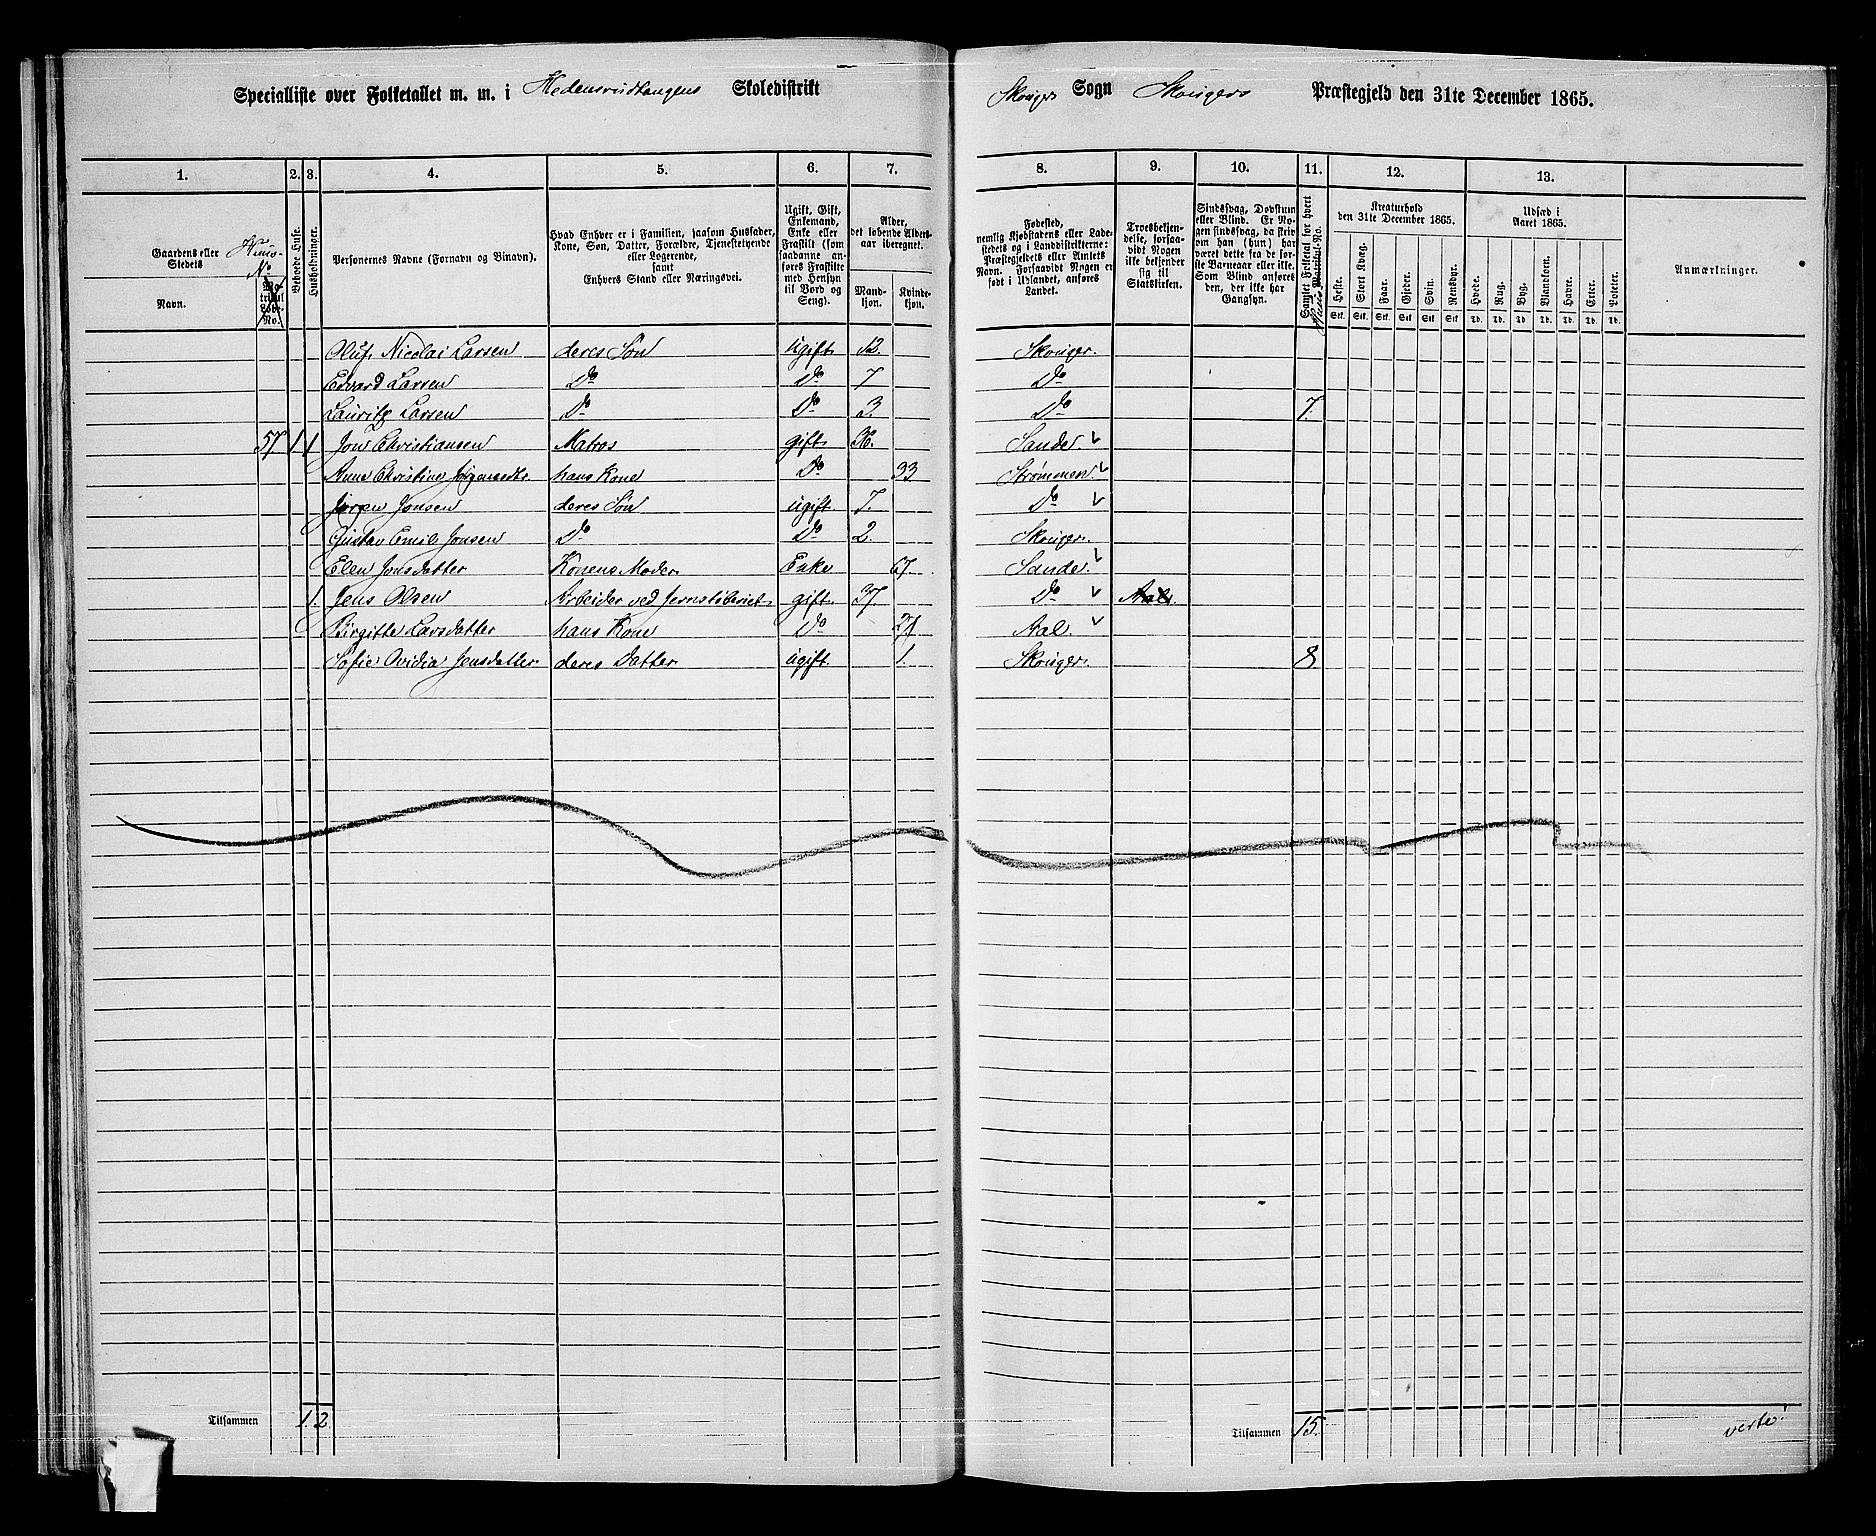 Specialliste over Folketallet m. m. i Hedensrudtangens Skoledistrikt Skouger Sogn Skougers Præstegjeld den 31te December 1865.
1. 2. 3. 4. 5. 6. 7. 8. 9. 10. 11. 12. 13.
Gaardens eller Stedets
Navn.
Huus-No
Matrikul Løbe-No.
Beboede Huse.
Husholdninger.
Personernes Navne (Fornavn og Binavn).
Hvad Enhver er i Familien, saasom Husfader, Kone, Søn, Datter, Forældre, Tjenestetyende eller Logerende, samt Enhvers Stand eller Næringsvei.
Ugift, Gift, Enkemand, Enke eller Fraskilt (som saadanne anføres Fraskilte med Hensyn til Bord og Seng).
Alder, det løbende Aldersaar iberegnet.
Mandkjøn. Kvindekjøn.
Fødested, nemlig Kjøbstadens eller Ladestedets og i Landdistrikterne: Præstegjeldets eller Amtets Navn. Forsaavidt Nogen er født i Udlandet, anføres Landet.
Troesbekjendelse, forsaavidt Nogen ikke bekjender sig til Statskirken.
Sindssvag, Døvstum eller Blind. Er Nogen sindssvag, da skrives om han (hun) har været dette fra de første Barneaar eller ikke. Som Blind anføres den, der ikke har Gangsyn.
Samlet Folketal for hvert Huus Matrikul-No.
Kreaturhold den 31te December 1865.
Heste. Stort Kvæg. Faar. Gjeder. Svin. Rensdyr.
Stk. Stk. Stk. Stk. Stk. Stk.
Udsæd i Aaret 1865.
Hvede. Rug. Byg. Blandkorn. Havre. Erter. Poteter.
Td. Td. Td. Td. Td. Td. Td.
Anmærkninger.
Oluf Nicolai Larsen deres Søn ugift 12. Skouger.
Edvard Larsen Do Do 7 Do
Lauritz Larsen Do Do 3. Do 7.
57. 1 1 Jon Christiansen Matros gift 36. Sande.
Anne Christine Jørgensdtr. hans Kone Do 33 Strømmen.
Jørgen Jonsen deres Søn ugift 7. Do
Gustav Emil Jonsen Do Do 2. Skouger.
Elen Jonsdatter Konens Moder Enke 67. Sande.
1. Jens Olsen Arbeider ved Jernstøberiet gift 37. Do Aal.
Birgitte Larsdatter hans Kone Do 27 Aal.
Sofie Ovidia Jensdatter deres Datter ugift 1. Skouger. 8
Tilsammen 1. 2. Tilsammen 15. verte!